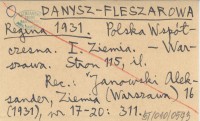 DANYSZ-FLESZAROWA
Regina 1931. Polska Współ-
czesna. I. Ziemia. - War-
szawa. Stron 115, il.
Rec.: Janowski Alek-
sander, Ziemia (Warszawa) 16
(1931), nr 17-20: 311.